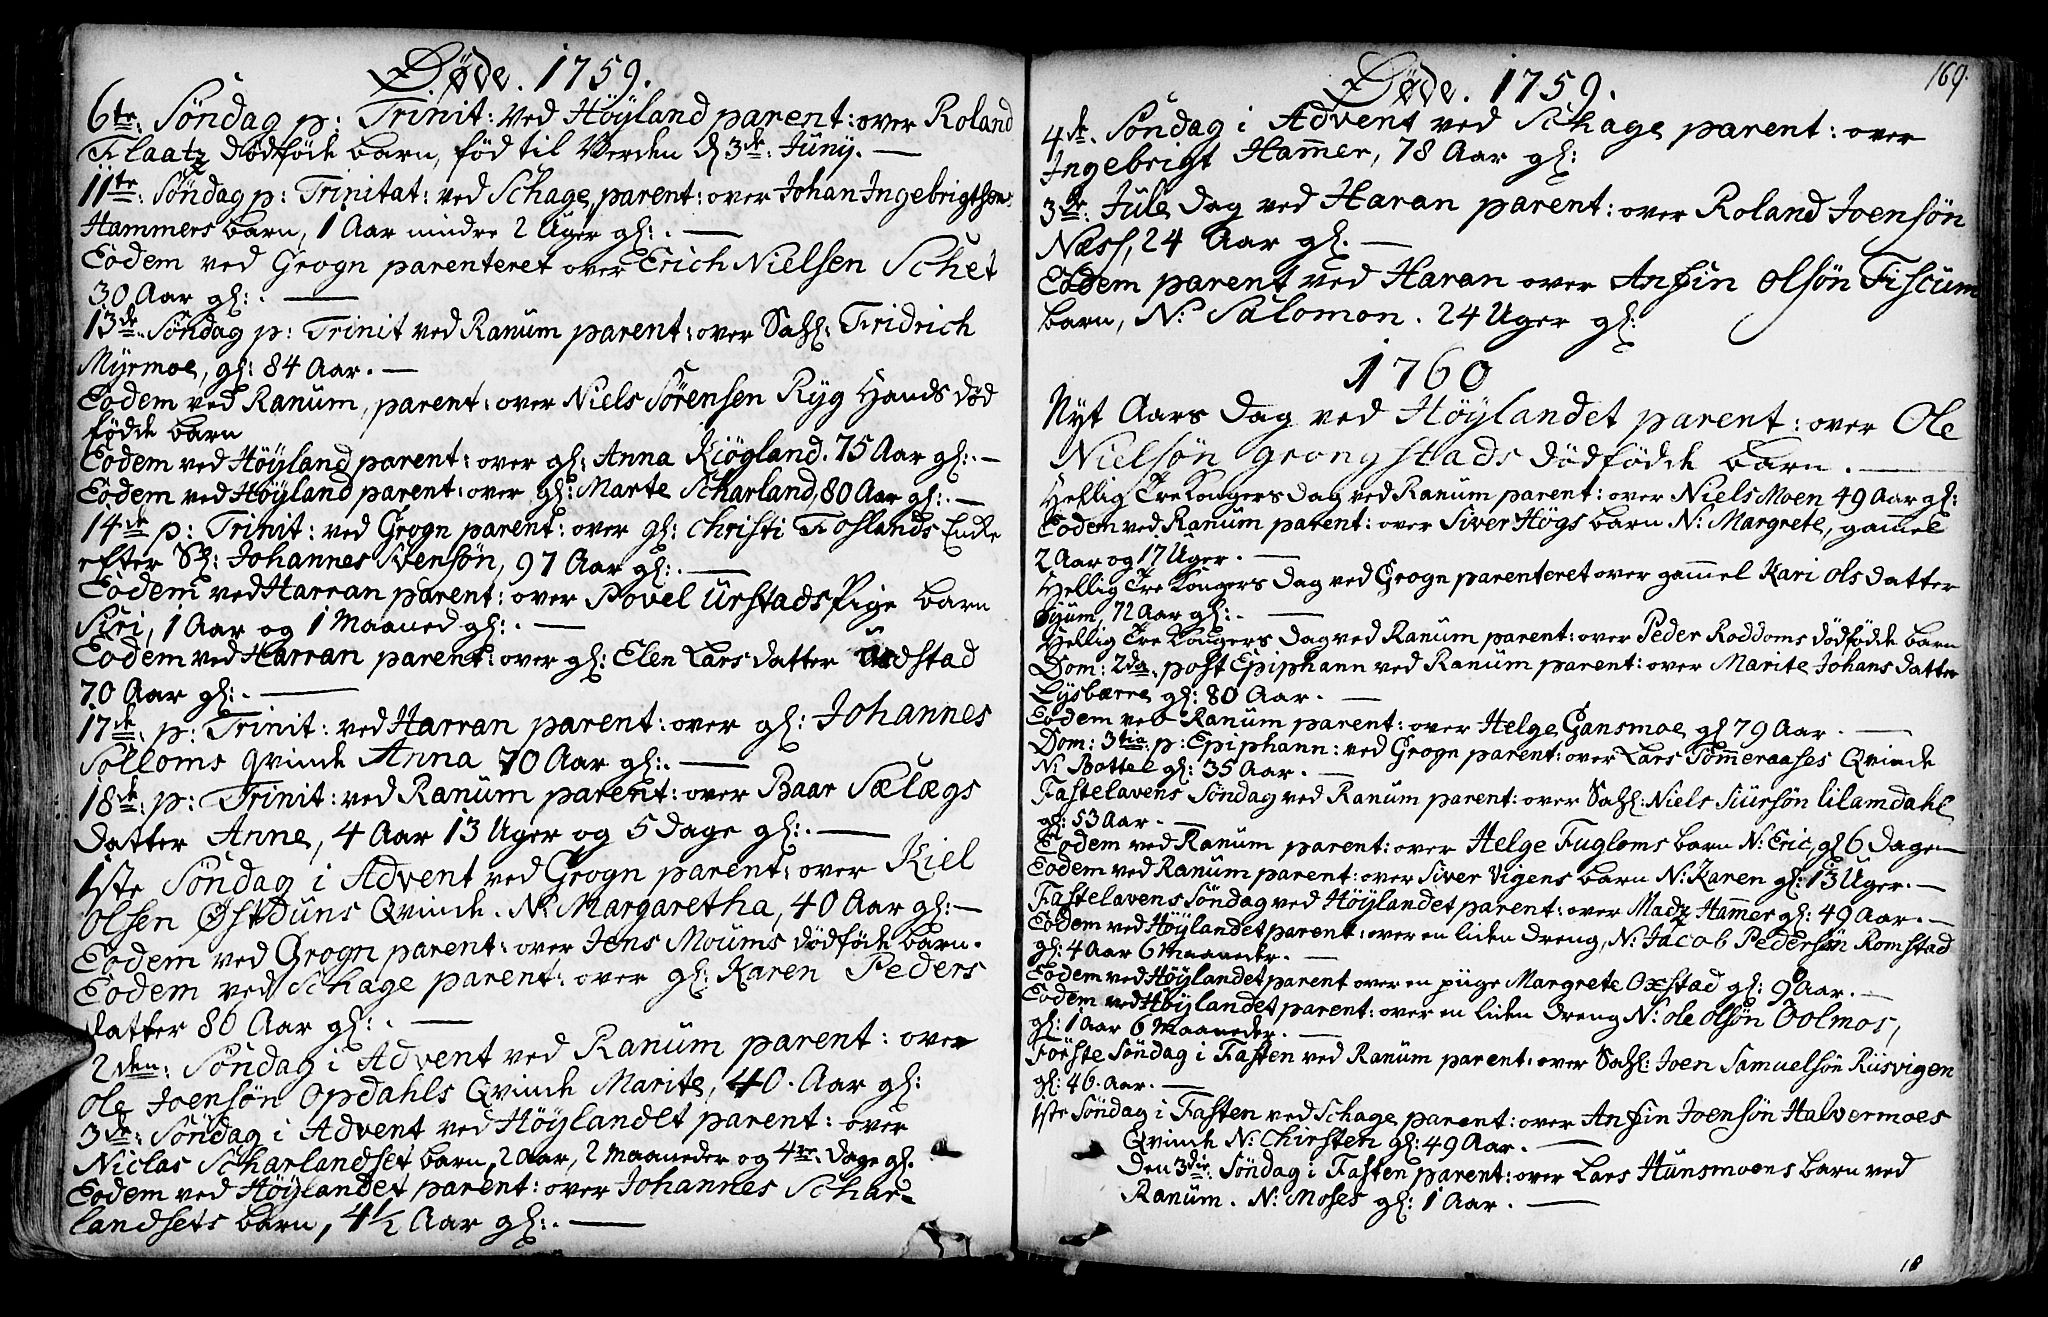 Døde. 1759.
6te: Söndag p: Trinit: ved Höyland parent: over Roland
Flaatz dödföde barn, föd til Verden d 3de: Juny. —
11te: Söndag p: Trinitat: ved Schage, parent: over Johan Ingebrigtsen
Hammers barn, 1 Aar mindre 2 Uger gl: . —
Eodem ved Grogn parenteret over Erich Nielsen Schet
30 Aar gl: . —
13de: Söndag p: Trinit ved Ranum parent: over Sahl: Fridrich
Myrmoe, gl: 84 Aar. —
Eodem ved Ranum, parent: over Niels Sörensen Ryg Hands död
födde barn
Eodem ved Höyland parent: over gl: Anna Kiögland. 75 Aar gl: . —
Eodem ved Höyland parent: over gl: Marte Scharland, 80 Aar gl: . —
14de p: Trinit: ved Grogn parent: over gl: Christi Foslands Enke
efter Sl: Johannes Svensön, 97 Aar gl: . —
Eodem ved Harran parent: over Povel Urstads Pige barn
Siri, 1 Aar og 1 Maaned gl: . —
Eodem ved Harran parent: over gl: Elen Lars datter Urdstad
70 Aar gl: . —
17de: p: Trinit: ved Harran parent: over gl: Johannes
Solloms qvinde Anna 70 Aar gl: . —
18de: p: Trinit: ved Ranum parent: over Baar Sælægs
datter Anne, 4 Aar 13 Uger og 5 Dage gl: . —
1ste Söndag i Advent ved Grogn parent: over Kiel
Olsen Østduns Qvinde. N: Margaretha, 40 Aar gl: —
Eodem ved Grogn parent: over Jens Moums dödföde barn.
Eodem ved Schage parent: over gl: Karen Peders
datter 86 Aar gl: . —
2den: Söndag i Advent ved Ranum parent: over
Ole Joensön Opdahls Qvinde Marite, 40. Aar gl:
3de: Söndag i Advent ved Höylandet parent: over
Niclas Scharlandset barn, 2 Aar, 2 Maaneder og 4re Dage gl.
Eodem ved Höylandet parent: over Johannes Schar-
landsets barn, 4½ Aar gl: . —
169.
Døde. 1759.
4de. Söndag i Advent ved Schage parent: over
Ingebrigt Hammer, 78 Aar gl:
3de: Jule dag ved Haran parent: over Roland Joensön
Næss, 24 Aar gl. —
Eodem parent ved Haran over Anfin Olsön Fiscum
barn, N: Salomon. 24 Uger gl:
1760
Nyt Aars Dag ved Höylandet parent: over Ole
Nielsön Grongstads dödfödde barn. —
Hellig Tre Kongers Dag ved Ranum parent: over Niels Moen 49 Aar gl:
Eodem ved Ranum parent: over Siver Högs barn N: Margrete, gammel
2 Aar og 17 Uger. —
Hellig Tre Kongers Dag ved Grogn parenteret over gammel Kari Ols datter
72 Aar gl: . —
Hellig Tre Kongers Dag ved Ranum parent: over Peder Roddoms dödfödde barn
Dom: 2da. post Epiphann ved Ranum parent: over Marite Johans datter
Lysbærre gl: 80 Aar. —
Eodem ved Ranum parent: over Helge Gansmoe gl 79 Aar. —
Dom: 3tia: p: Epiphann: ved Grogn parent: over Lars Tömmeraases Qvinde
N: Battel gl: 35 Aar. —
Fastelavens Söndag ved Ranum parent: over Sahl: Niels Siursön Lilamdahl
gl: 53 Aar. —
Eodem ved Ranum parent: over Helge Fugloms barn N: Eric gl 6 Dage —
Eodem ved Ranum parent: over Siver Vigens barn N: Karen gl: 13 Uger. —
Fastelavens Söndag ved Höylandet parent: over Madz Hammer gl: 49 Aar. —
Eodem ved Höylandet parent: over en liden Dreng, N: Jacob Pedersön Romstad
gl: 4 Aar 6 Maaneder. —
Eodem ved Höylandet parent over en piige Margrete Oxstad gl: 9 Aar. —
Eodem ved Höylandet parent: over en liden Dreng N: Ole Olsön Oolmos,
gl: 1 Aar 6 Maaneder. —
Förste Söndag i Fasten ved Ranum parent: over Sahl: Joen Samuelsön Riisvigen
gl: 46. Aar. —
1ste Söndag i Fasten ved Schage parent: over Anfin Joensön Halvermoes
Qvinde N: Chirsten gl: 49 Aar. —
Den 3die. Söndag i Fasten parent: over Lars Hunsmoens barn ved
Ranum. N: Moses gl: 1 Aar. —
18